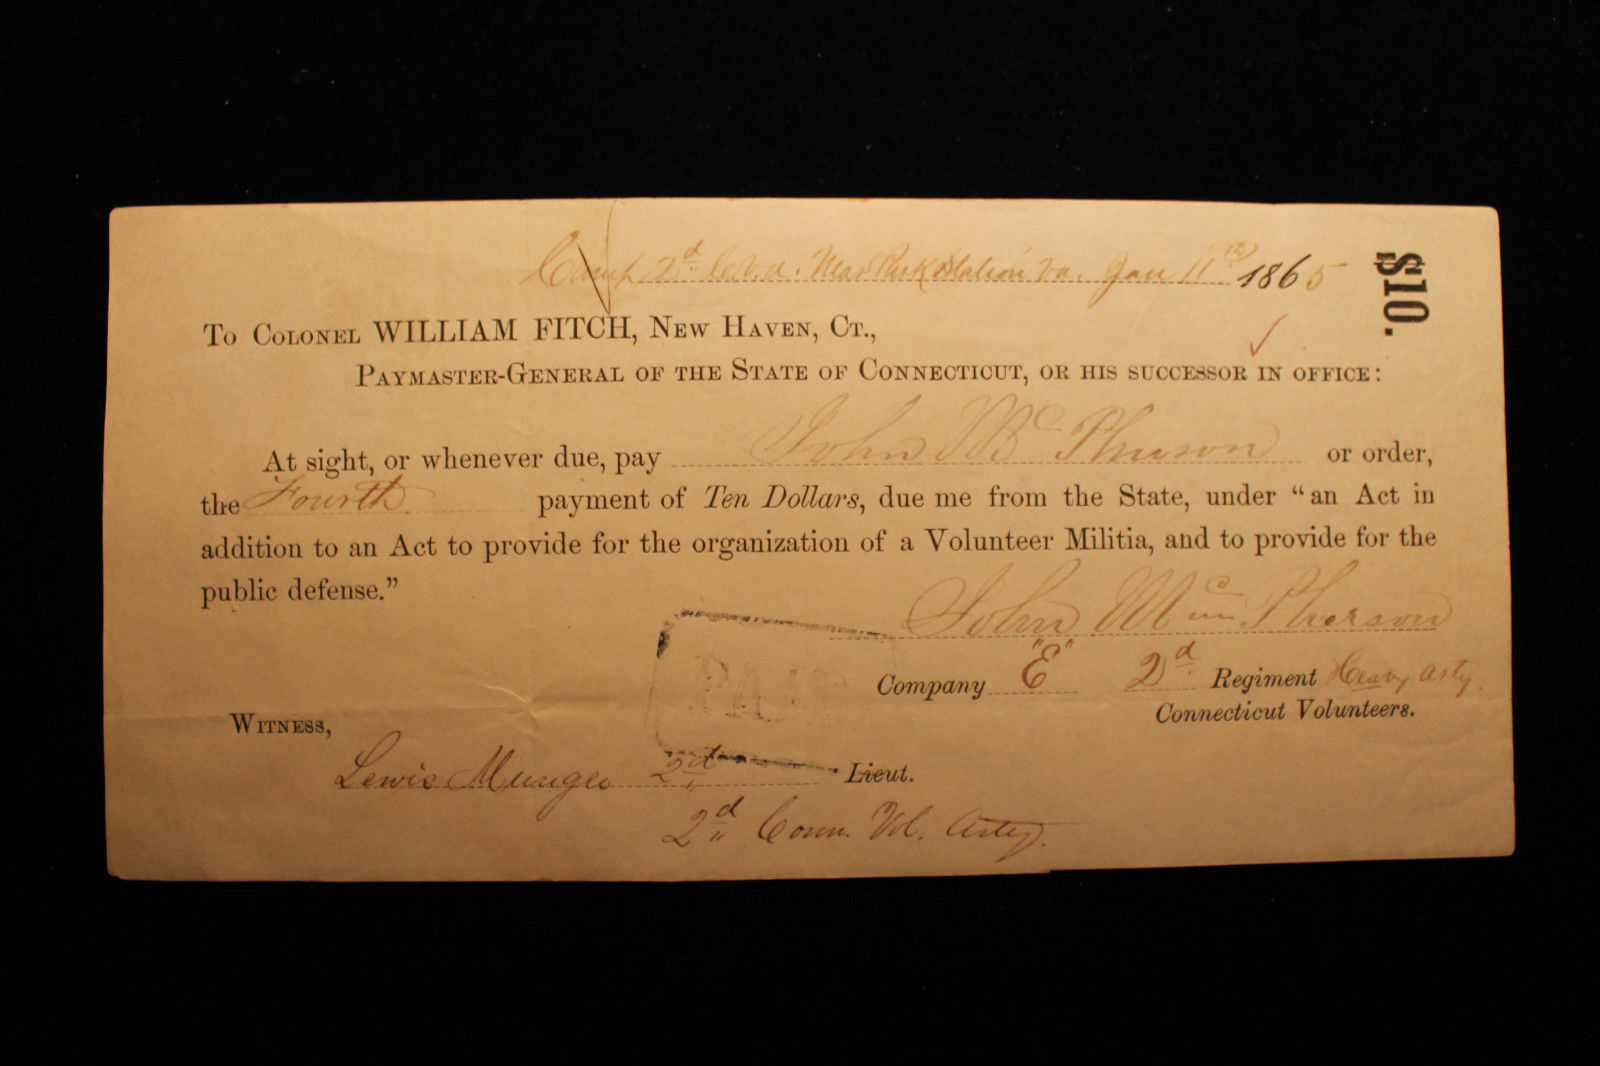 Camp 2d C.V.A. Near Park Station Va. Jan 11th 1865
$10.
To Colonel WILLIAM FITCH, New Haven, Ct.,
Paymaster-General of the State of Connecticut, or his successor in office:
At sight, or whenever due, pay John Mc Pherson or order,
the Fourth payment of Ten Dollars, due me from the State, under "an Act in
addition to an Act to provide for the organization of a Volunteer Militia, and to provide for the
public defense."
John Mc Pherson
Company "E" 2d Regiment Heavy Arty
Connecticut Volunteers.
PAID
Witness,
Lewis Munger 2d Lieut.
2d Conn. Vol. Arty.